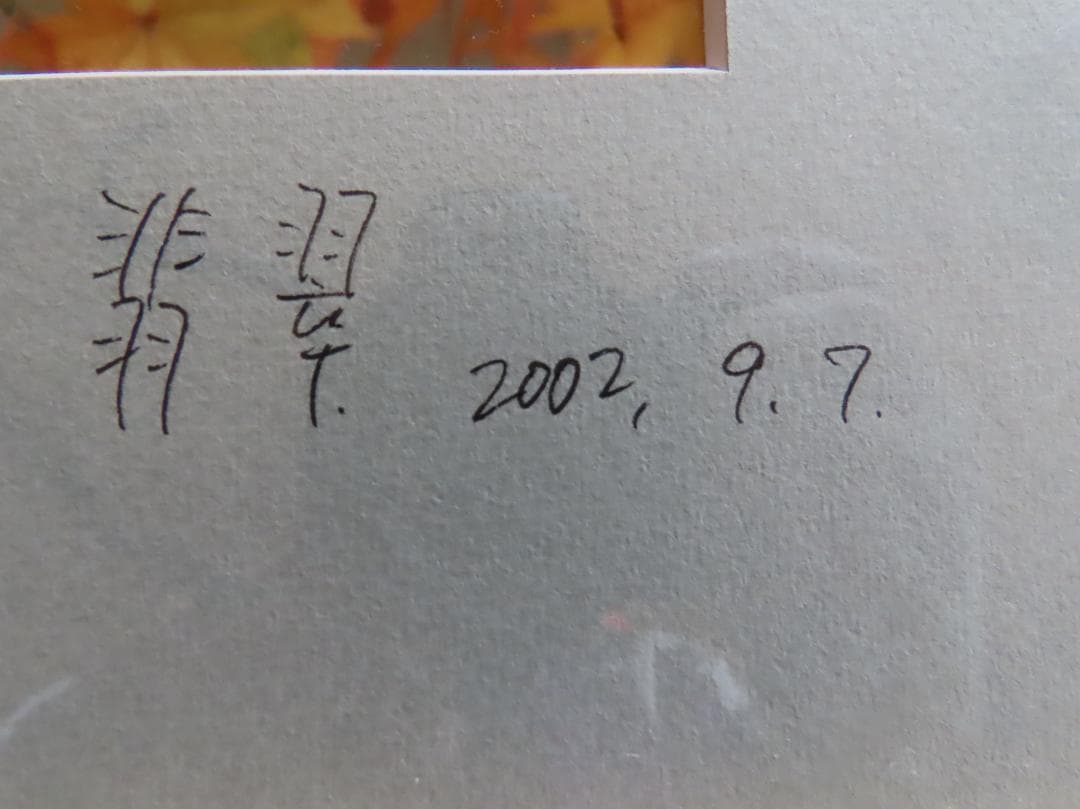 翡翠 2002, 9. 7.